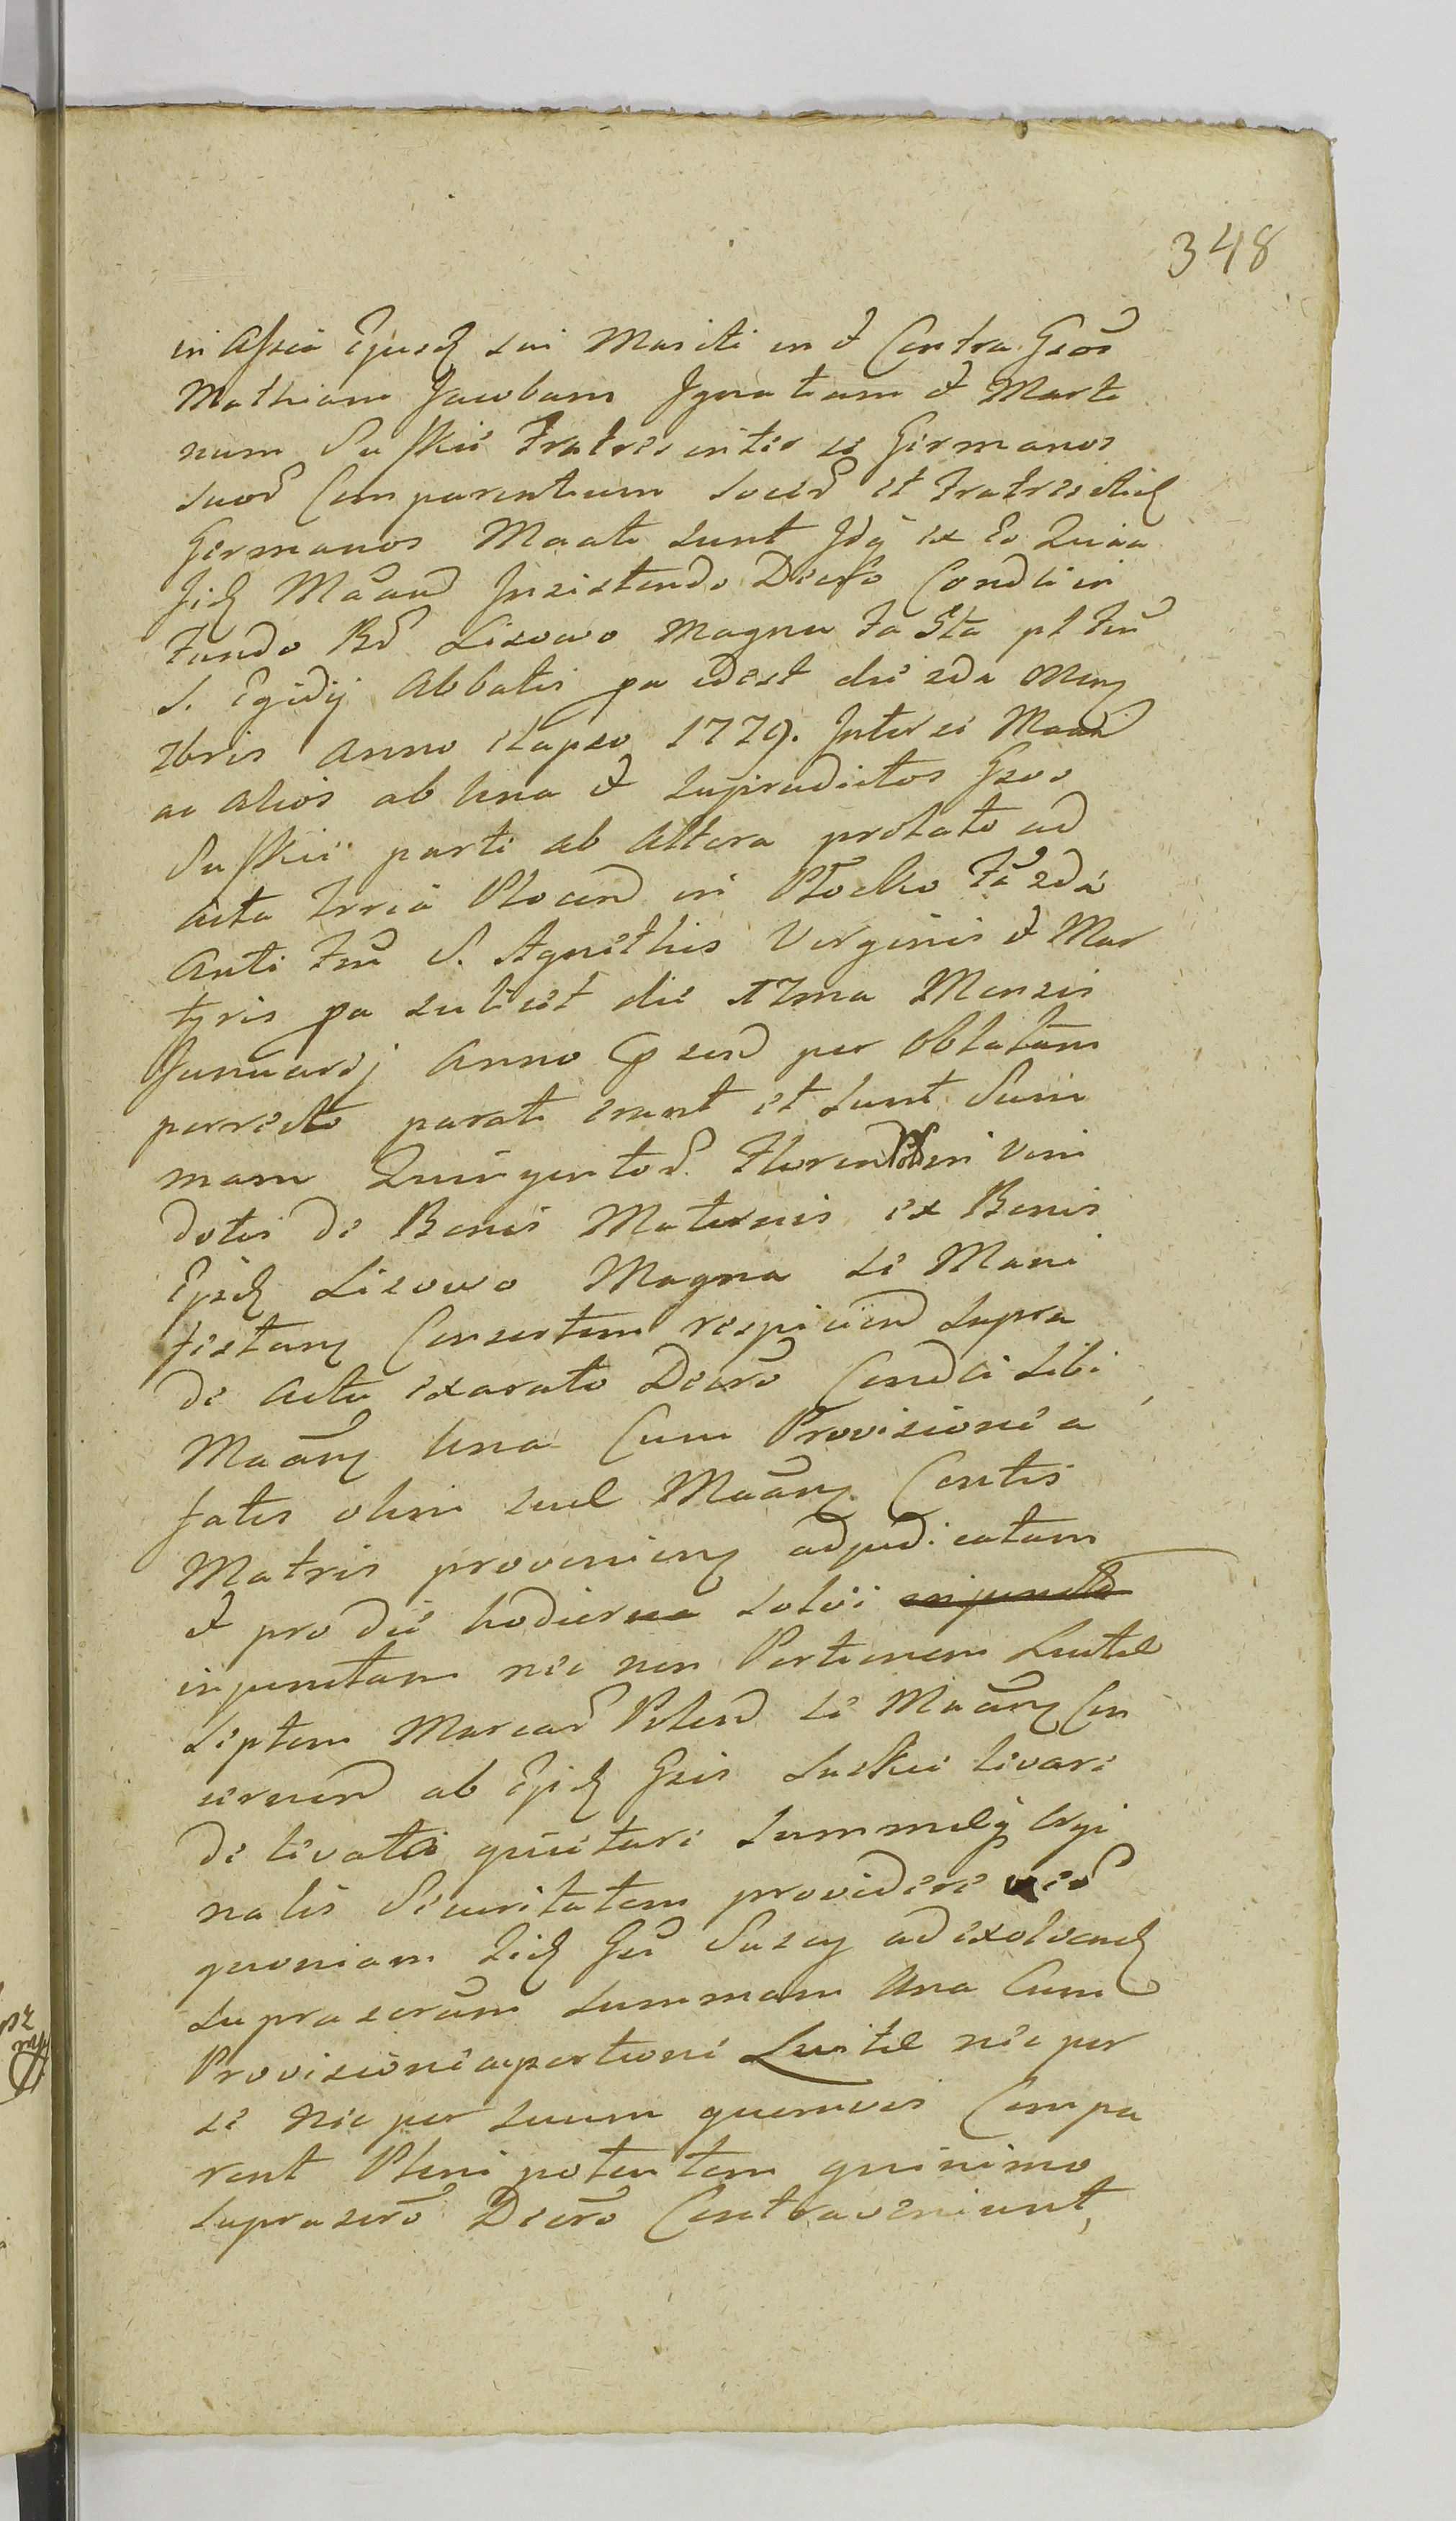 348
in Assia Ejusd sui Mariti in et Contra Gsos
Mathiam Jacobum Ignatium et Marti
num Susskie Fratres inter se Germanos
suos Comparentium Socer et Fratres itid
Germanos Maati sunt Idq ex Eo Quia
Iid Maand Insistendo Decro Condli in
Fundo Br Lisowo Magna Fa 5ta pt Fm
S. Egidij Abbatis pa idest die 2da Mens
7bris Anno elapso 1779. Inter se Maan
ac alios ab Una et supradictos Gsos
Susskie parte ab altera prolato ad
acta Trria Plocen in Płocko Fa 2da
Anti Fm S. Agnethis Virginis et Mar
tyris pa scilicet die 17ma Mensis
Januarij Anno psen per Oblatam
porrecto parati erant et sunt Sum
mam Quingentor Floren Pol in Vim
dotis de Bonis Maternis ex Bonis
Ejsd Lisowo Magna se Mani
festan Consortem respicien supra
de actu exarato Decro Condli sibi
Maan Una Cum Provisione a
fatis olim suae Maan Contis
Matris provenien adjudicatam
et pro die hodierna solvi injuncta
injunctam nec non Portionem Luitae
Septem Marcar Polen se Maan Con
cernen ab Ejsd Gsis Suskie levare
de levatis quietare summaeq Orgi
nalis Securitatem providere
quoniam Iid Gsi Suscy ad exolvend
suprascram summam Una Cum
Provisione a portione Luitae nec per
se nec per suum quemvis Compa
rent Plenipotentem quinimo
suprascro Decro Contraveniunt,